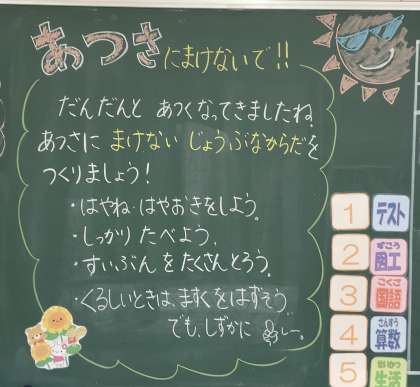 あつさにまけないで!!
だんだんと あつくなってきましたね。
あつさに まけない じょうぶなからだを
つくりましょう!
・はやね・はやおきをしよう。
・しっかり たべよう。
・すいぶん を たくさん とろう。
・くるしいときは、ますくをはずそう。
でも、しずかに
1 テスト
2 ずこう 図工
3 こくご 国語
4 さんすう 算数
5 せいかつ 生活